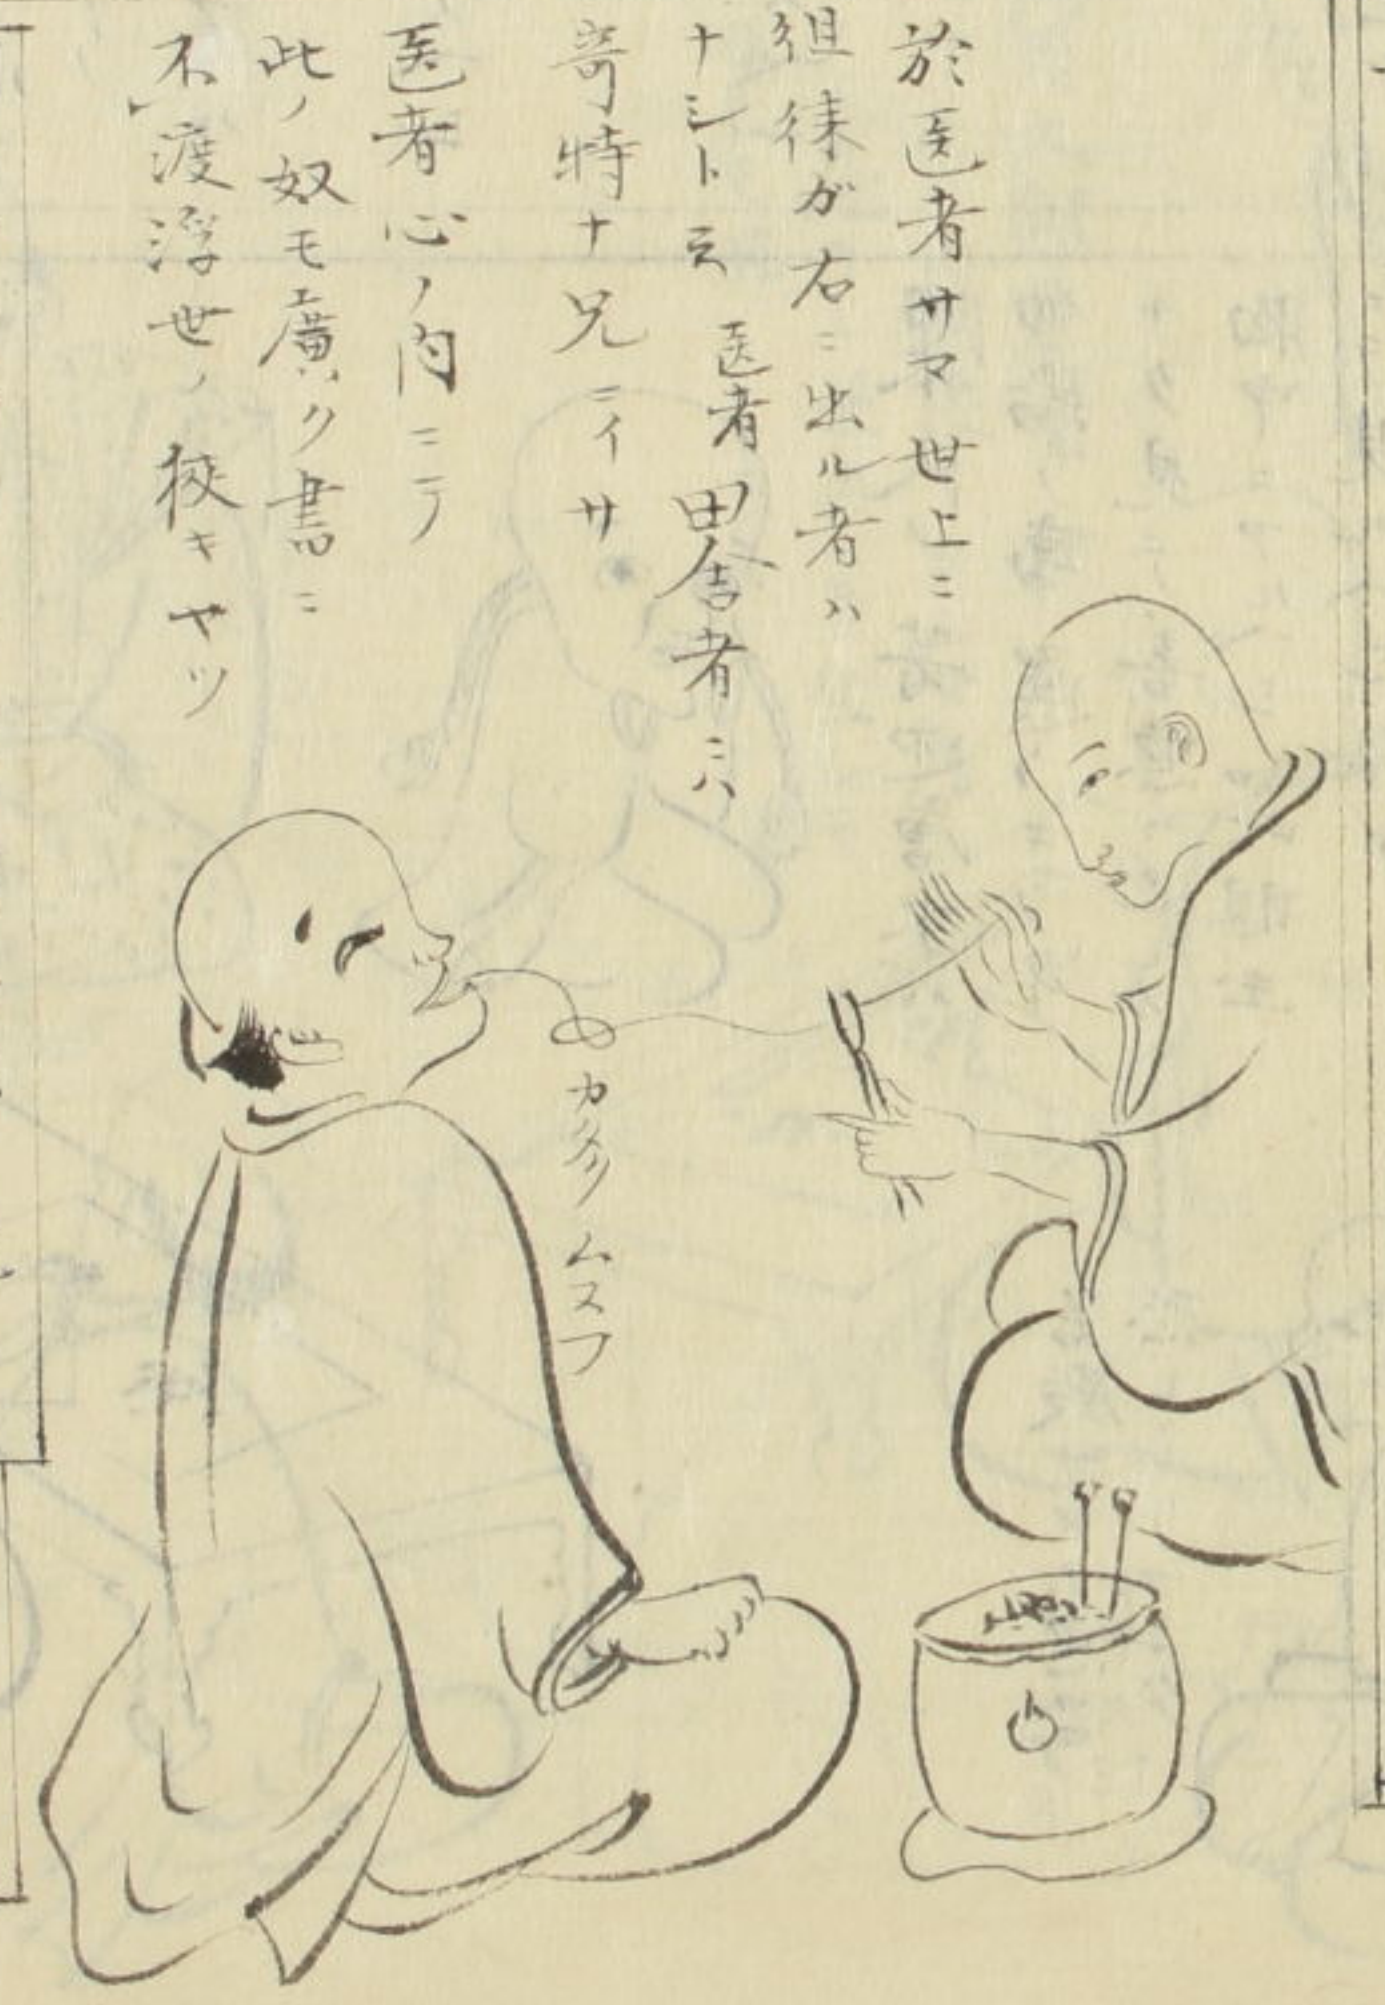 於医者サマ世上ニ
徂徠ガ右ニ出ル者ハ
ナシト云 医者田舎者ニハ
奇特ナ兄ニイサ
医者心ノ内ニテ
此ノ奴モ廣ハク書ニ
不渡浮世ノ狹キヤツ
ムスフ